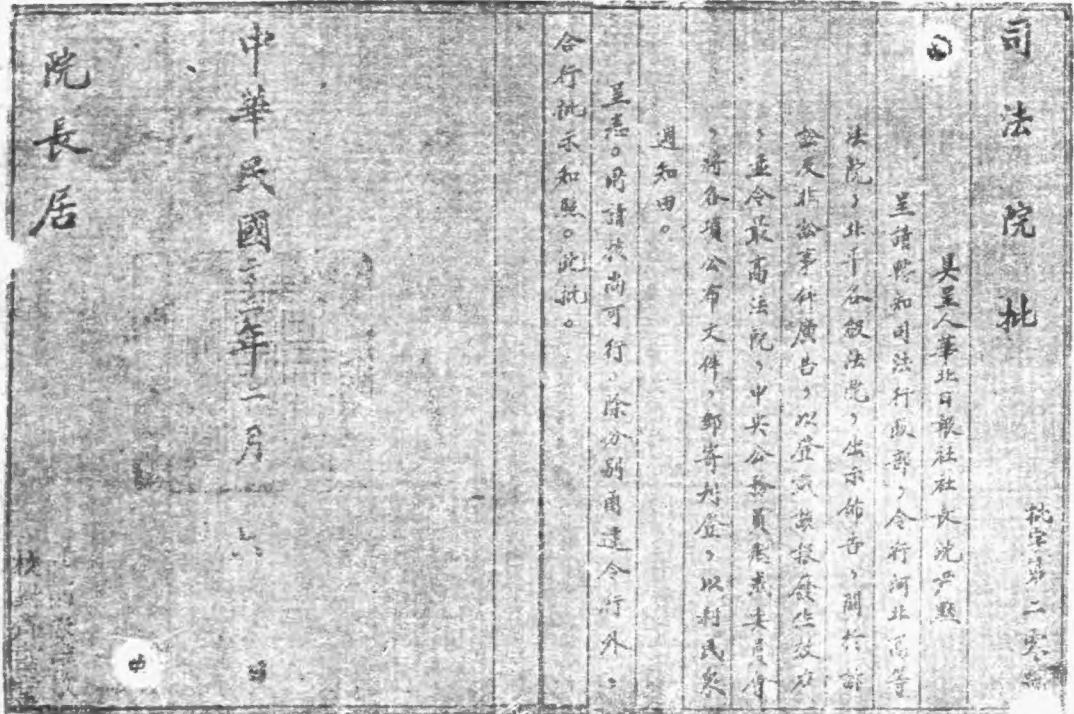 司法院批
批字第二零號
具呈人華北日報社社長沈尹默
呈請轉知司法行政部,令行河北高等
法院,北平各級法院,出示佈告,關於訴
訟及非訟事件廣告,以登載該報發生效力
,並令最高法院,中央公務員懲戒委員會
,將各項公布文件,郵寄刊登,以利民眾
週知由。
呈悉。所請核尚可行,除分別函達令行外,
合行批示知照。此批。
中華民國 年二月六日
院長居
校